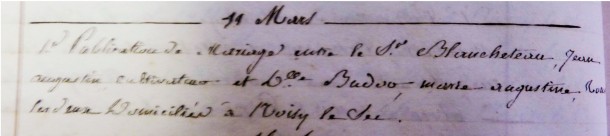 11 Mars
1re Publication de Mariage entre le Sr Blancheteau, Jean
augustin cultivateur et Dlle Budor, marie augustine,
les deux Domiciliés à Noisy le Sec.